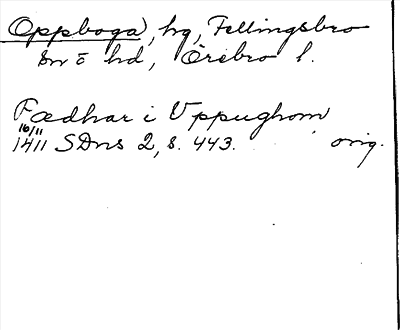 Oppboga, hg, Fellingsbro
sn o hd, Örebro l.
Fædhar i Uppughom
16/11
1411 SDns 2, s. 443. orig.